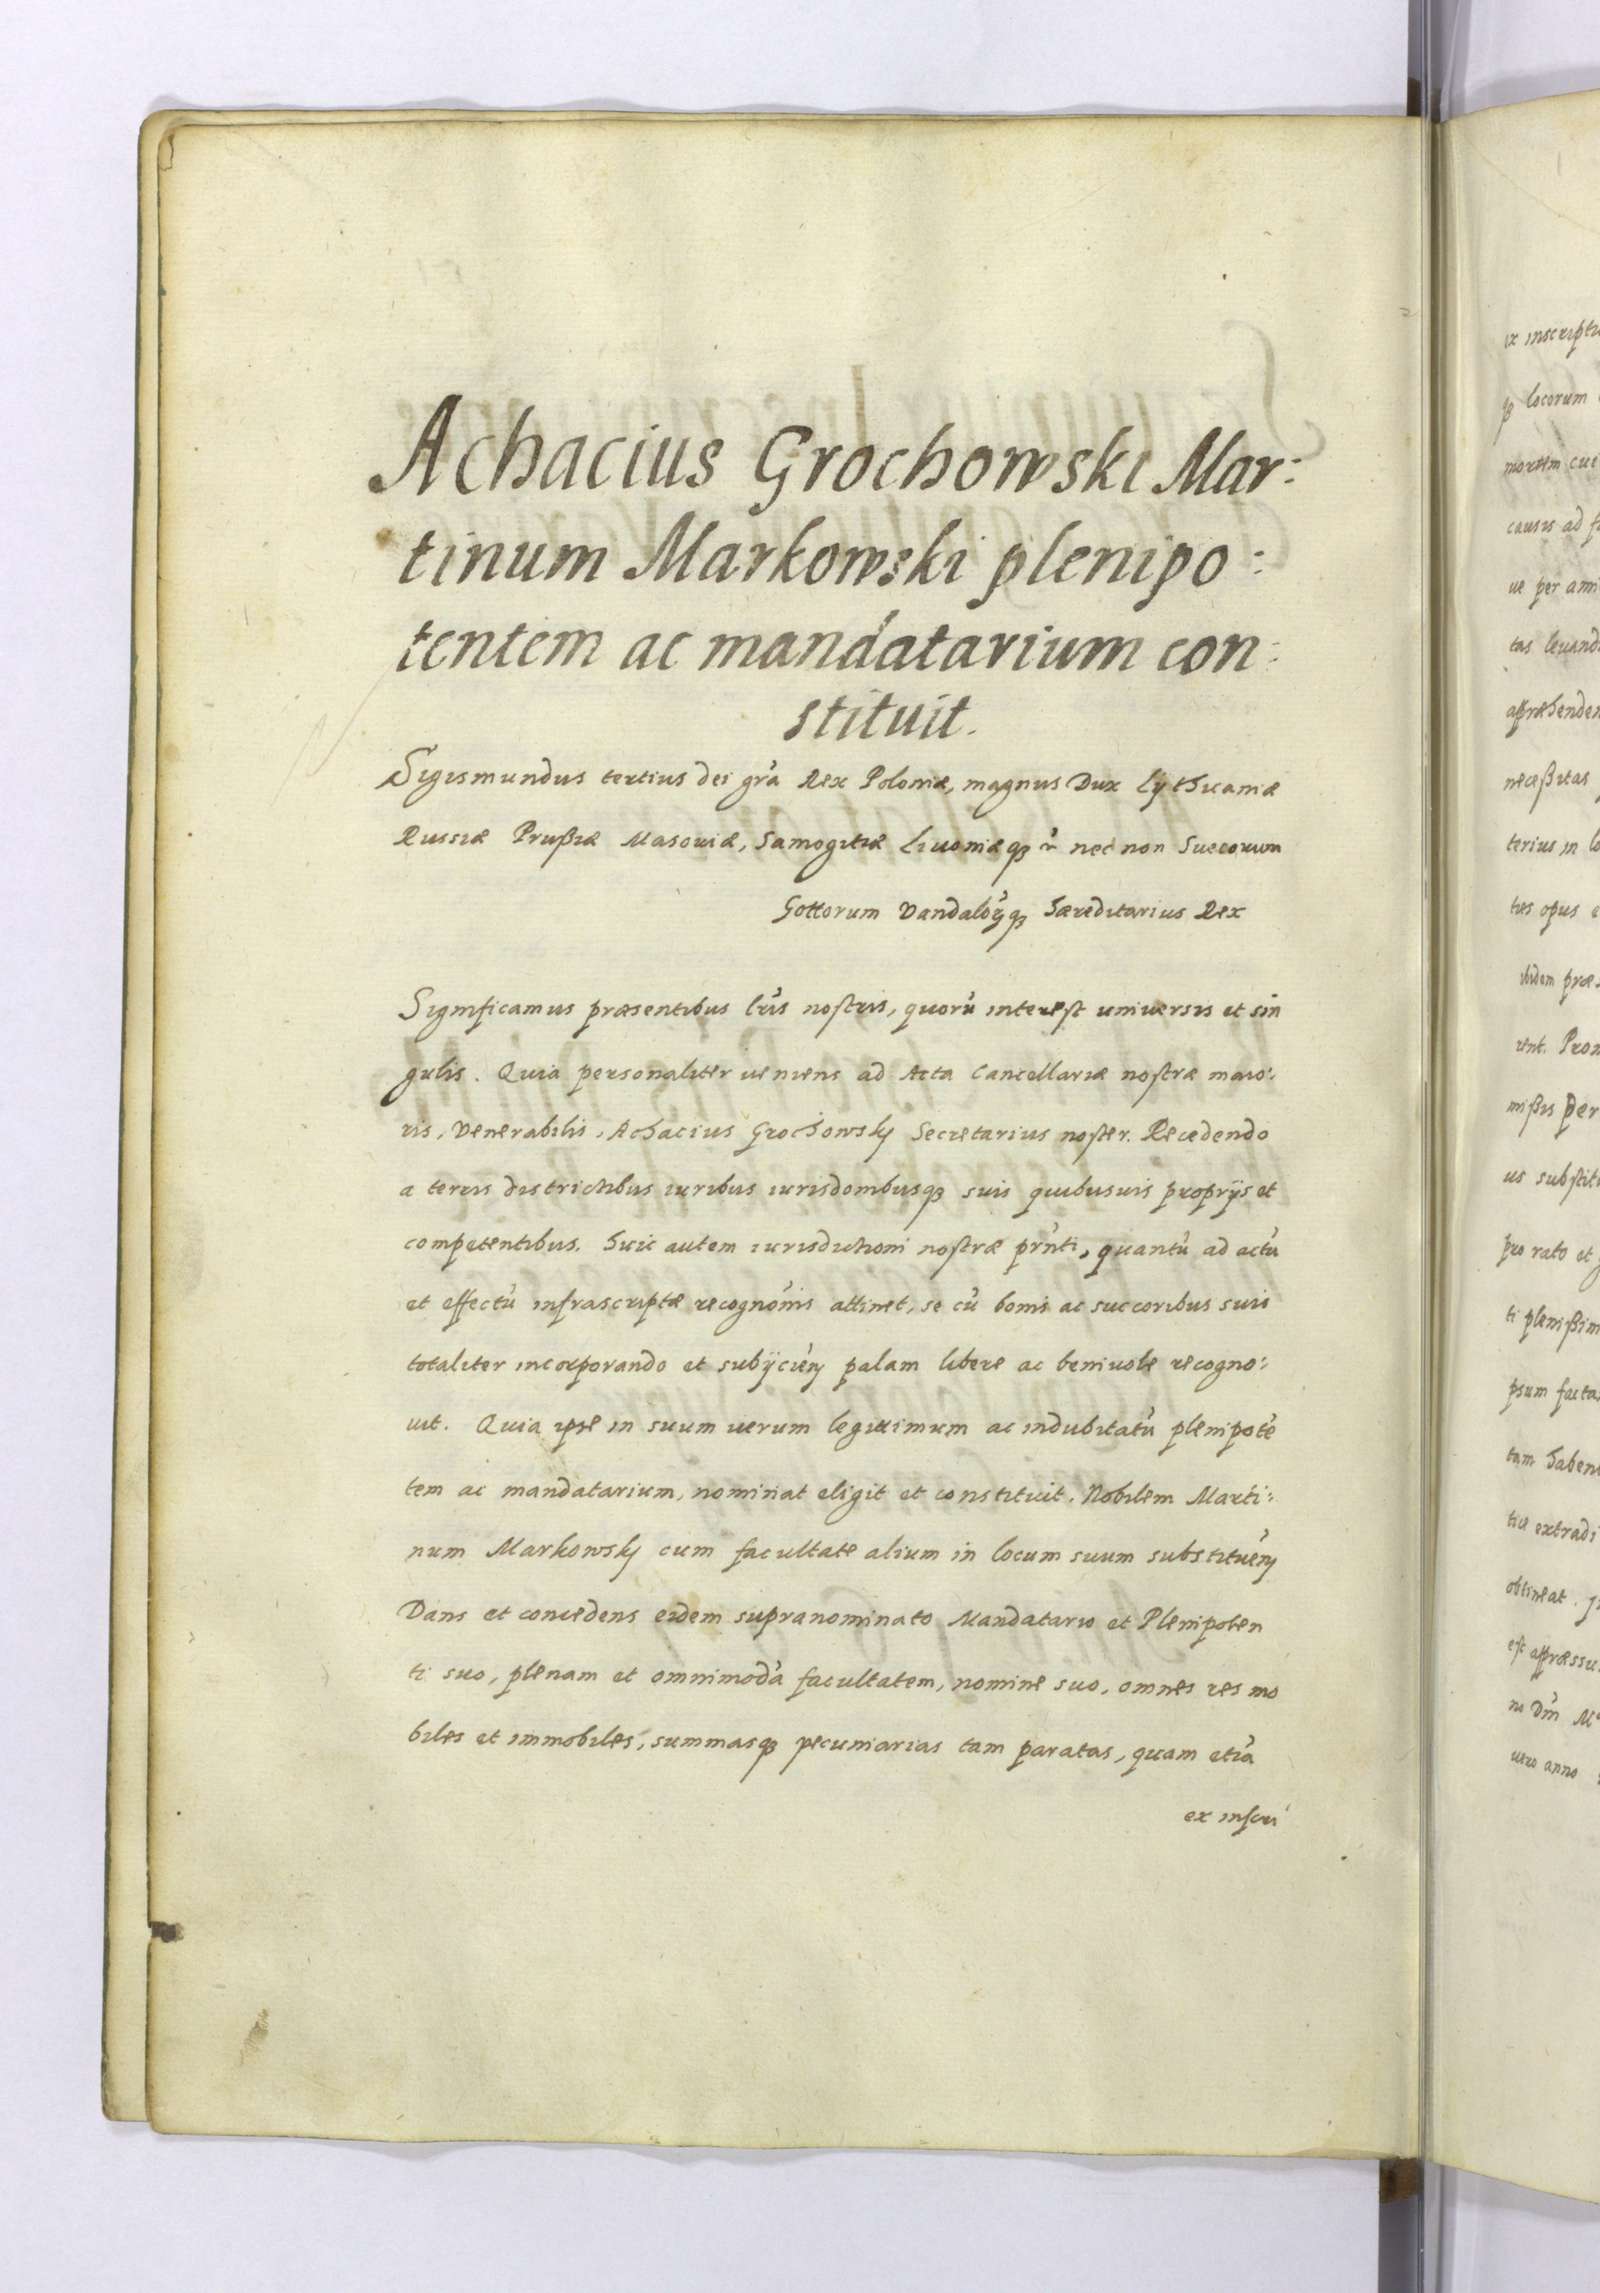 Achacius Grochowski Mar:
tinum Markowski plenipo:
tentem ac mandatarium con:
stituit.
Sigismundus tertius dei gra̓ Rex Poloniæ, magnus Dux Lythuaniæ
Russiæ Prußiæ Masouiæ, Samogitiæ Liuoniæqꝫ nec non Suecorum
Gottorum Vandaloꝝqꝫ hæreditarius Rex
Significamus præsentibus lr̓is nostris, quoru̓ interest uniuersis et sin
gulis. Quia personaliter ueniens ad Acta Cancellariæ nostræ maio:
ris, Venerabilis, Achacius Grochowsky Secretarius noster. Recedendo
a terris districtibus iuribus iurisdombusqꝫ suis quibusuis proprijs et
competentibus. Huic autem iurisdictioni nostræ pr̓nti, quantu̓ ad actu̓
et effectu̓ infrascriptæ recogno̓nis attinet, se cu̓ bonis ac succoribus suis
totaliter incorporando et subijcien̓ palam libere ac beniuole recogno:
uit. Quia ipse in suum uerum legittimum ac indubitatu̓ plenipote̓
tem ac mandatarium, nominat eligit et constituit. Nobilem Marti:
num Markowsky cum facultate alium in locum suum substituen̓
Dans et concedens eidem supranominato Mandatario et Plenipoten
ti suo, plenam et omnimoda̓ facultatem, nomine suo, omnes res mo
biles et immobiles, summasqꝫ pecuniarias tam paratas, quam etia̓
ex inscri
ix inscriptu
locorum
mortem cui
causis ad
ue per ami
tas leuand
appræhenden
neceßitas
terius in lo
ties opus e
ibidem præ
rent. Prom
mißis per
us substit
pro rato et
ti plenißim
psum facta
tam haben
tue extradi
obtineat.
est appræssu
no Dm̓ M
uero anno